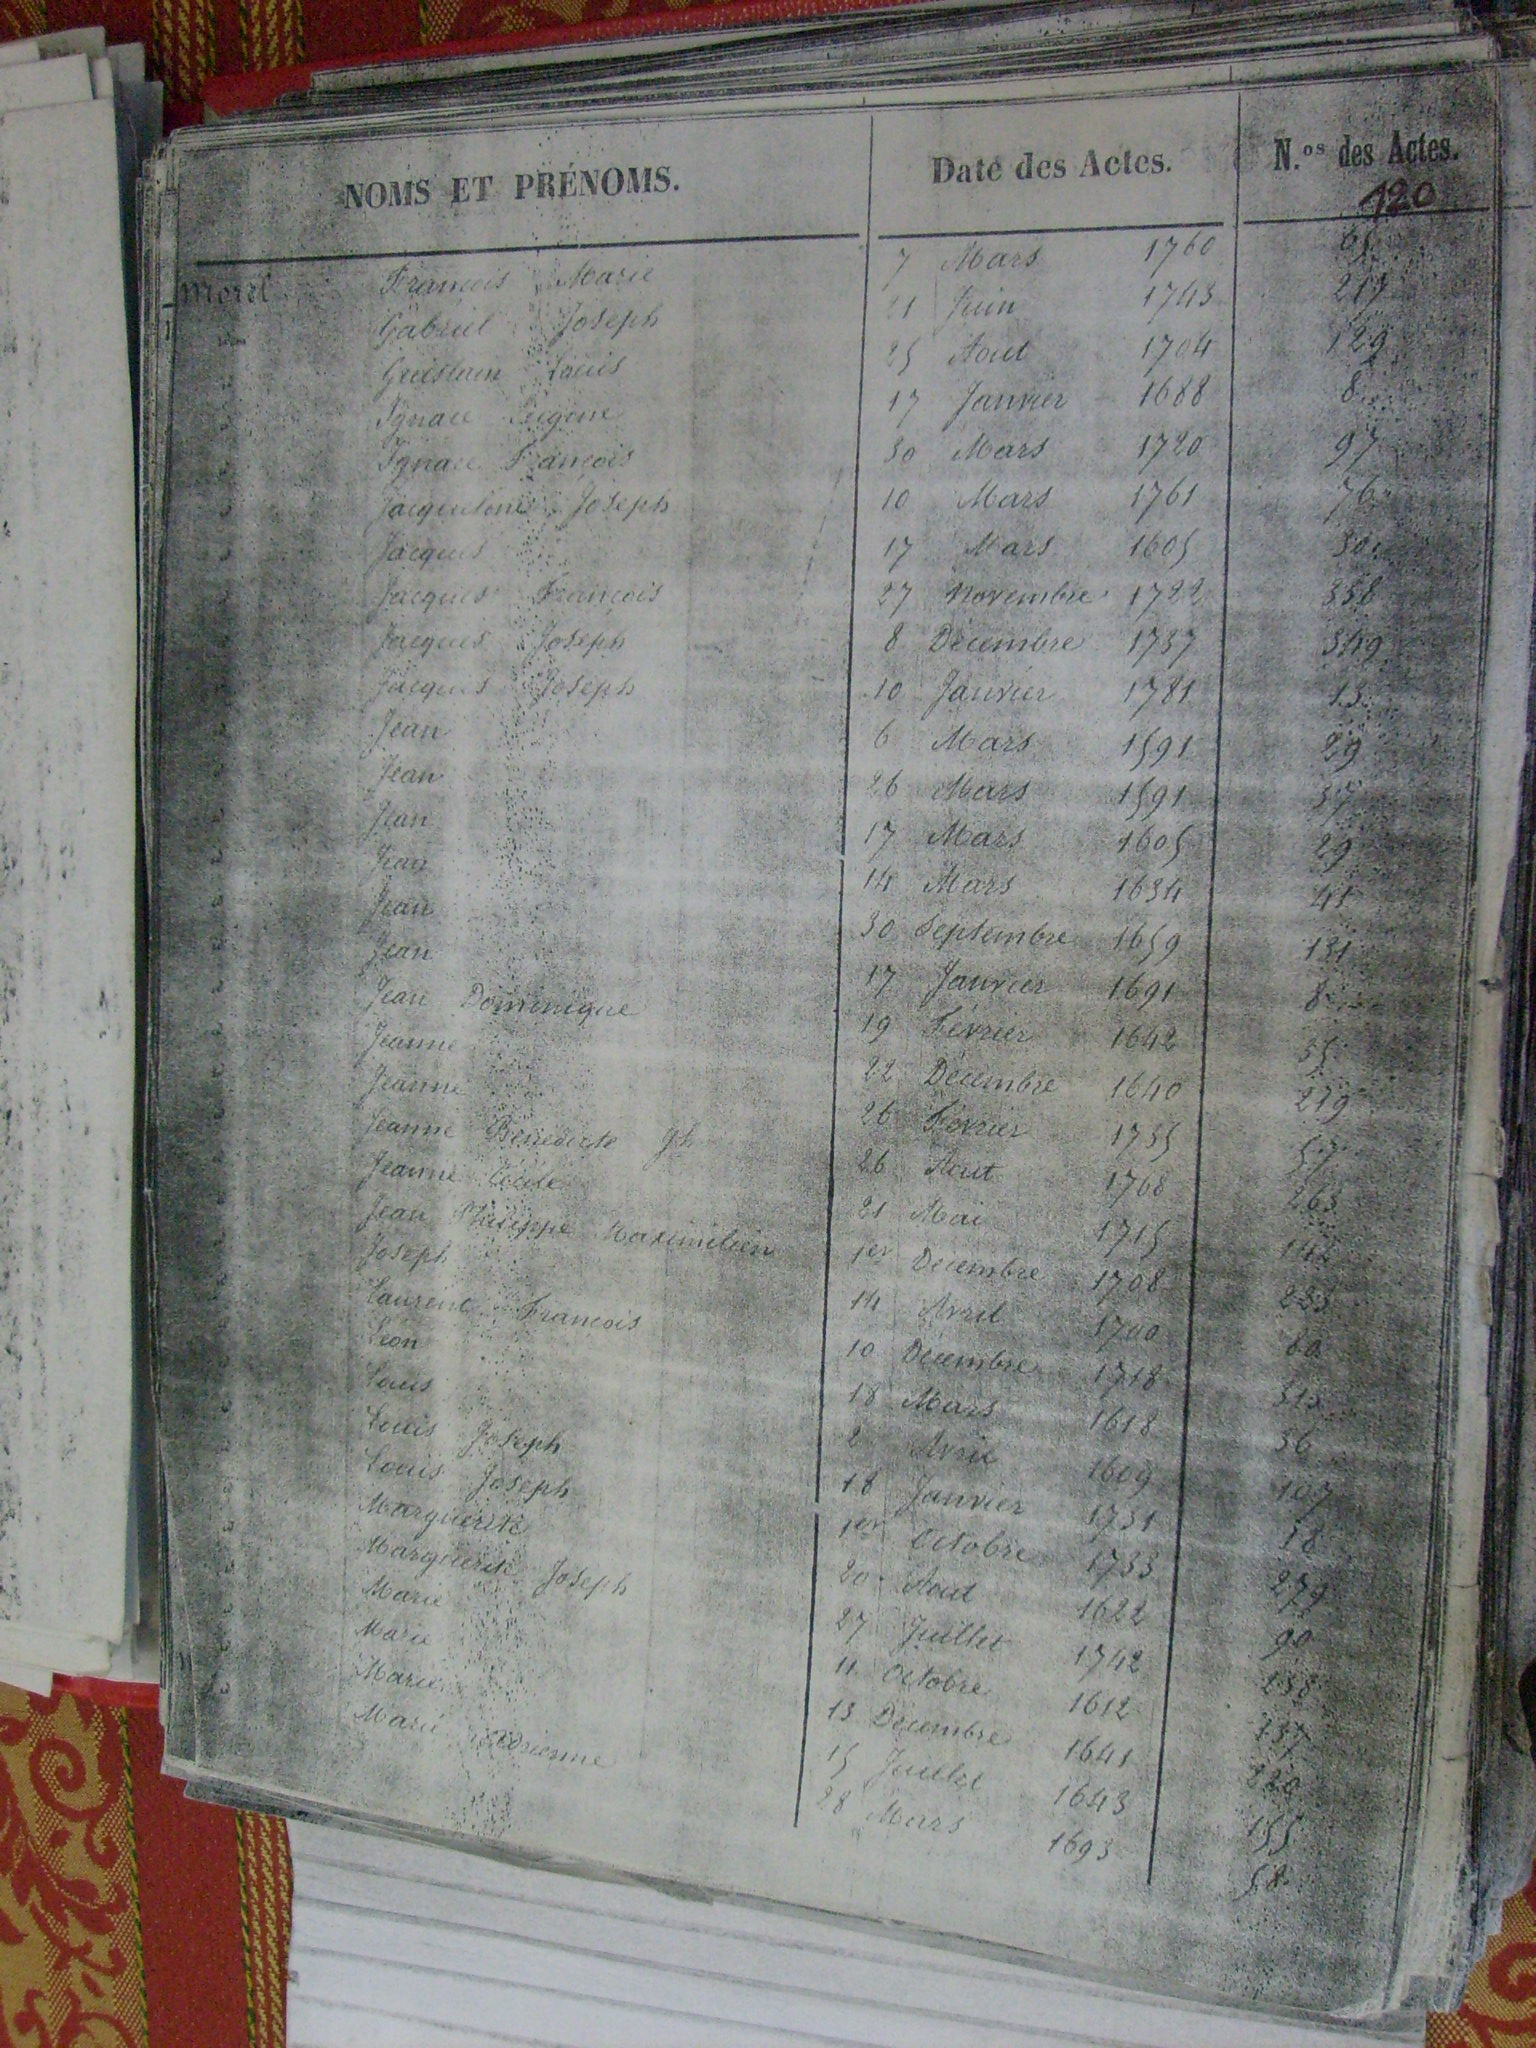 NOMS ET PRÉNOMS. Date des Actes. N.os des Actes.
120
Morel François Marie 7 Mars 1760 65
" Gabriel Joseph 21 Juin 1743 217
" Guislain Louis 25 Aout 1704 129
" Ignace Eugene 17 Janvier 1688 8
" Ignace François 30 Mars 1720 97
" Jacqueline Joseph 10 Mars 1761 76
" Jacques 17 Mars 1605 30
" Jacques François 27 Novembre 1722 338
" Jacques Joseph 8 Décembre 1737 349
" Jacques Joseph 10 Janvier 1781 13
" Jean 6 Mars 1591 29
" Jean 26 Mars 1591 37
" Jean 17 Mars 1605 29
" Jean 14 Mars 1634 41
" Jean 30 Septembre 1659 131
" Jean 17 Janvier 1691 8
" Jean Dominique 19 Février 1642 35
" Jeanne 22 Décembre 1640 219
" Jeanne 26 Février 1735 57
" Jeanne Bénédicte Jh 26 Aout 1768 263
" Jeanne Cécile 21 Mai 1715 142
" Jean Philippe Maximilien 1er Décembre 1708 223
" Joseph 14 Avril 1700 60
" Laurent François 10 Décembre 1718 313
" Léon 18 Mars 1618 36
" Louis 2 Avril 1609 107
" Louis Joseph 18 Janvier 1731 18
" Louis Joseph 1er Octobre 1733 279
" Marguerite 20 Aout 1622 90
" Marguerite Joseph 27 Juillet 1742 238
" Marie 11 Octobre 1612 137
" Marie 13 Décembre 1641 220
" Marie 15 Juillet 1643 155
" Marie Adrienne 28 Mars 1693 58